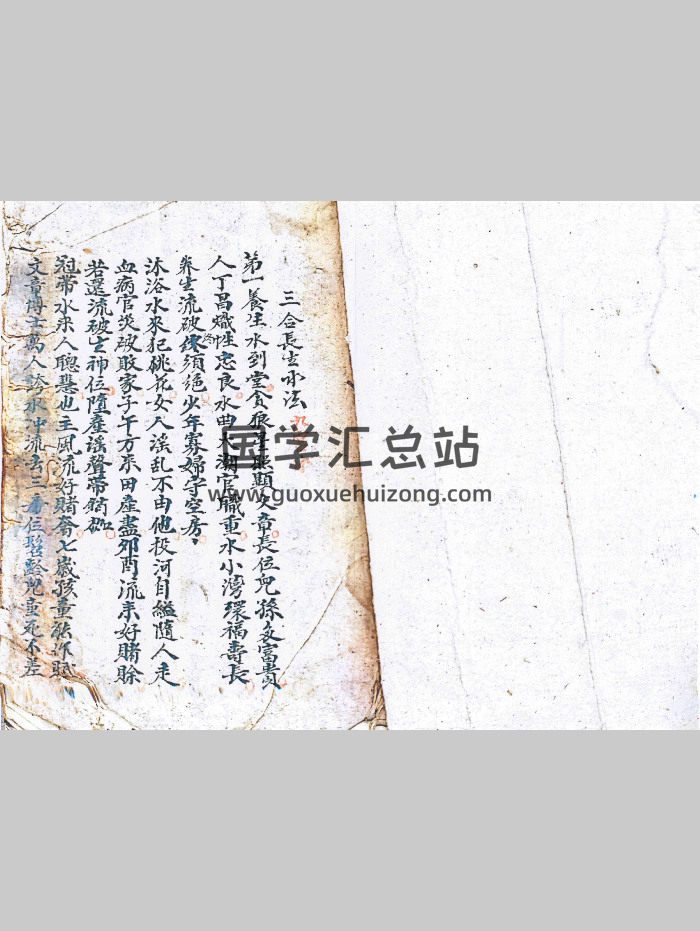 三合長生水法
第一養生水到堂貪狼星照顯文章長位兒孫多富貴
人丁昌熾性忠良水曲大潮官職重水小灣環福壽長
养生流破終須絕少年寡婦守空房
沐浴水來犯桃花女人淫乱不由他投河自縊隨人走
血病官災破敗家子午方來田產盡卯酉流來好賭賒
若還流破生神位墮產淫聲帶鎖枷
冠帶水來人聰慧也主風流好賭奢七歲孩童能作賦
文章博士萬人誇水沖流去三方位髫齡兒童死不差
国学汇总站
www.guoxuehuizong.com